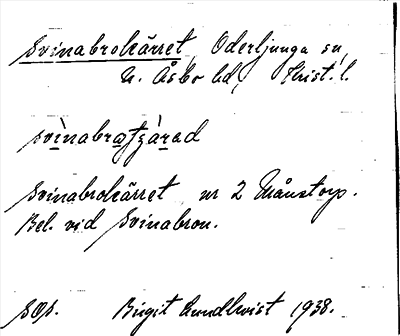 Svinabrokärret, Oderljunga sn,
N. Åsbo hd, Krist. l.
svìnabrotɟàrad
Svinabrokärret nr 2 Månstorp.
Bel. vid Svinabron.
SOp. Birgit Lundkvist 1938.